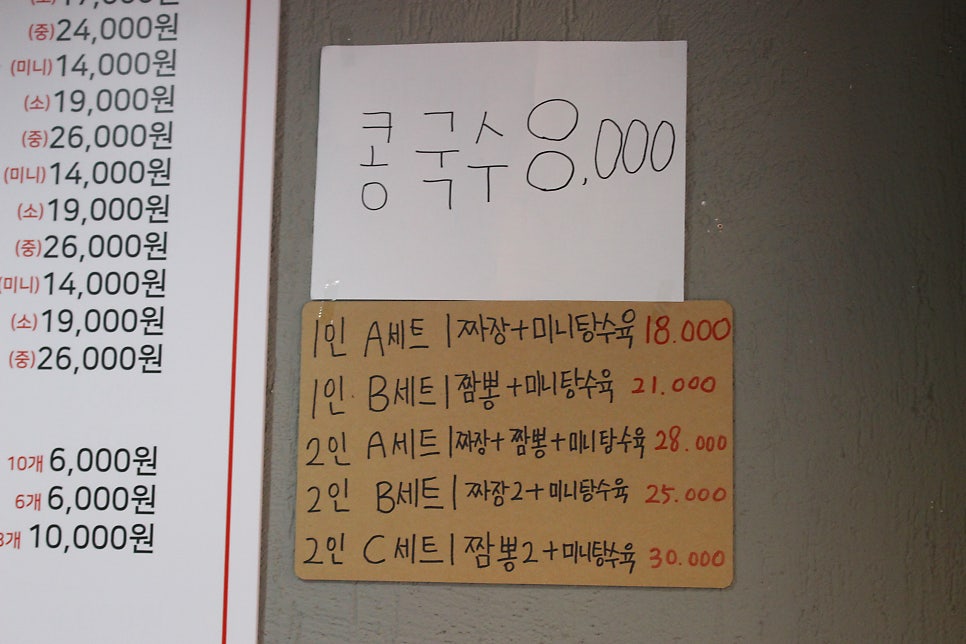 (중)24,000원
(미니)14,000원
(소)19,000원
(중)26,000원
(미니)14,000원
(소)19,000원
(중)26,000원
(미니)14,000원
(소)19,000원
(중)26,000원
10개 6,000원
6개 6,000원
개 10,000원
콩국수 8,000
1인 A세트 | 짜장+미니탕수육 18.000
1인. B세트 | 짬뽕+미니탕수육 21.000
2인 A세트 | 짜장+짬뽕+미니탕수육 28.000
2인 B세트 | 짜장2+미니탕수육 25.000
2인 C세트 | 짬뽕2+미니탕수육 30.000